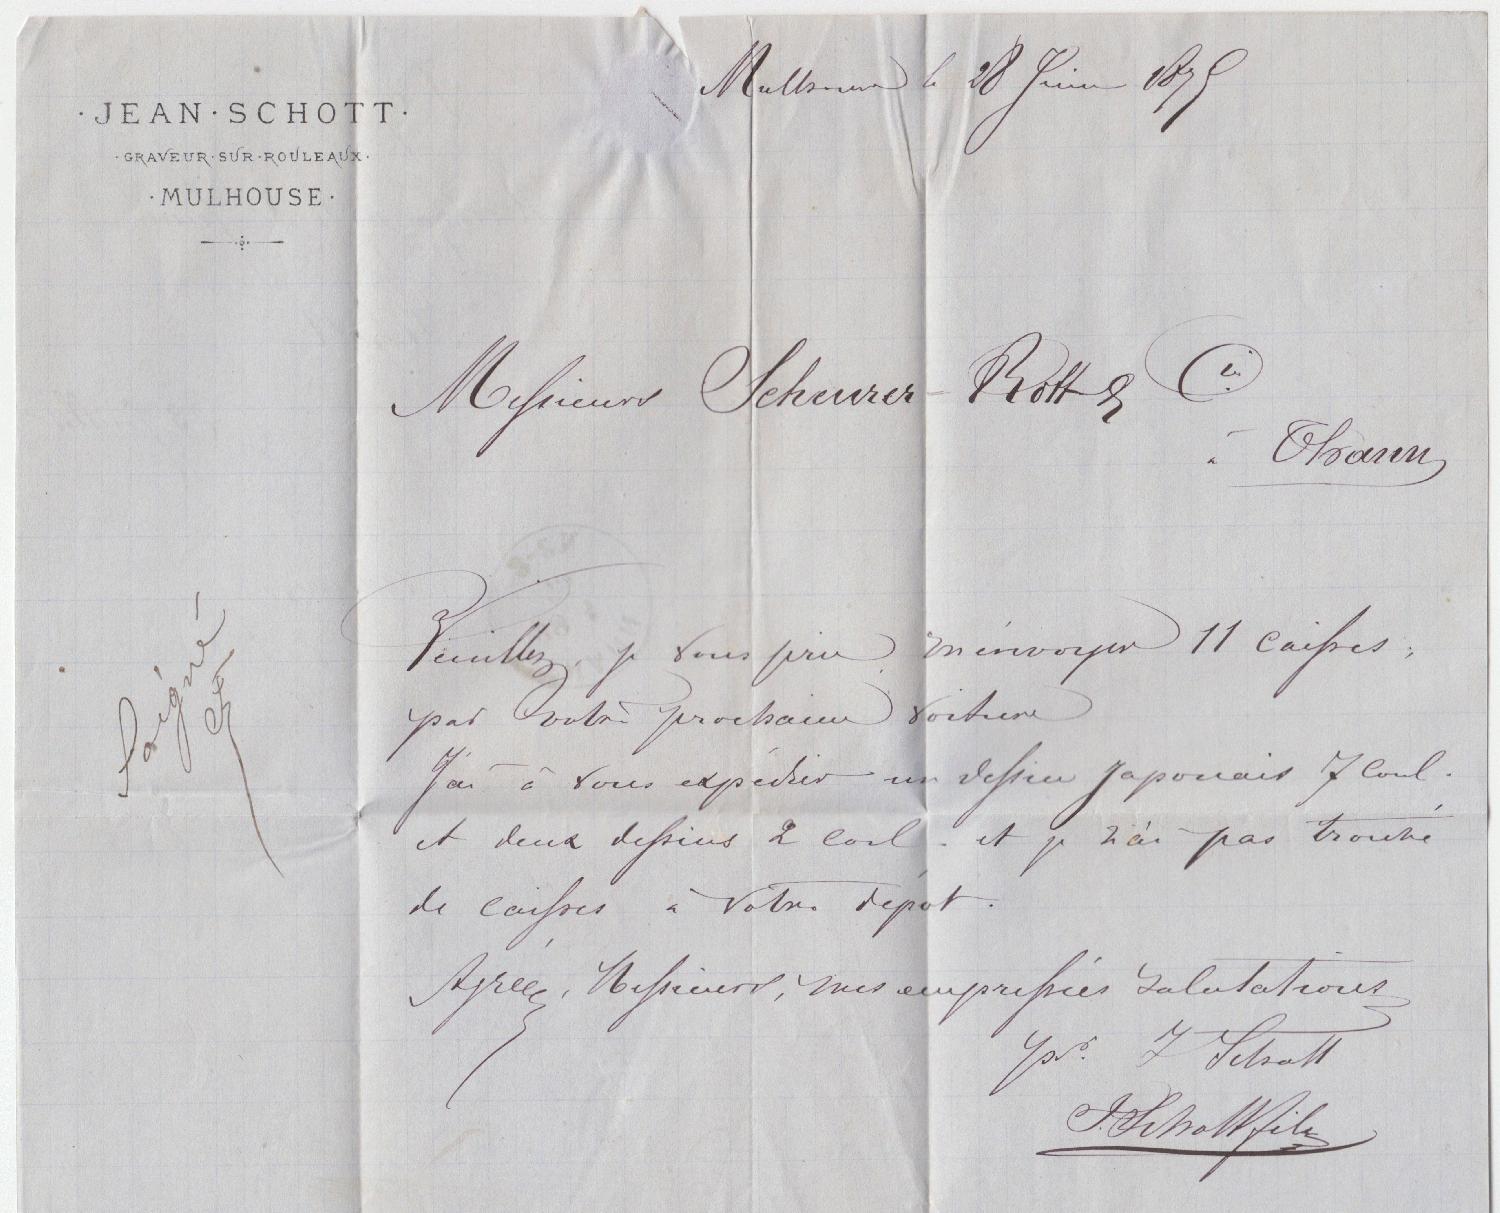 · JEAN · SCHOTT ·
· GRAVEUR · SUR · ROULEAUX ·
· MULHOUSE ·
Mulhouse le 28 Juin 1875
Messieurs Scheurer-Rott & Cie
à Thann
Veuillez, je vous prie, m'envoyer 11 caisses,
par votre prochaine voiture
J'ai à vous expédier un dessin Japonais 7 coul.
et deux dessins 2 coul. et je n'ai pas trouvé
de caisses à votre dépôt.
Agréez, Messieurs, mes empressées salutations
pr. J Schott
J. Schott fils
Soigné